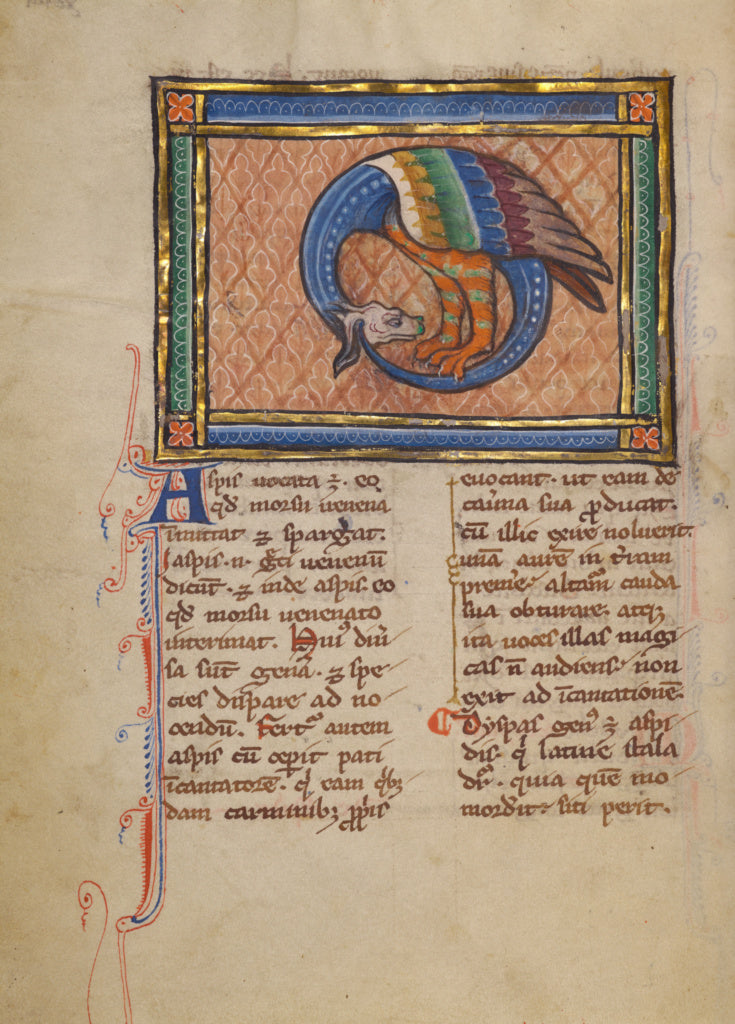 Aspis uocata ē. eo
qd' morsu uenena
īmittat ⁊ spargat.
Iaspis .n. g̃ci uenenū
dicūt. ⁊ inde aspis. eo
qd' morsu uenenato
interimat. Huiꝰ diu͛
sa sūt gena͛. ⁊ spe
cies dispare ad no
cendū. Fertᷣ autem
aspis cū ceꝑit pati
īcantatorē. q̇ eam qͥbꝫ
dam carminibꝫ ꝓpͥis
euocant. ut eam de
cau͛na sua ꝓducat.
cū illic exire noluerit.
unā aurē in t͛ram
preme͛. altam̄ cauda
sua obturare. atqꝫ
ita uoces illas magi
cas n̄ audiens. non
exit ad īcantationē.
Dyspas genꝰ ē aspi
dis. q̇ latine situla
dr̄. quia quē mo
morderit. siti perit.